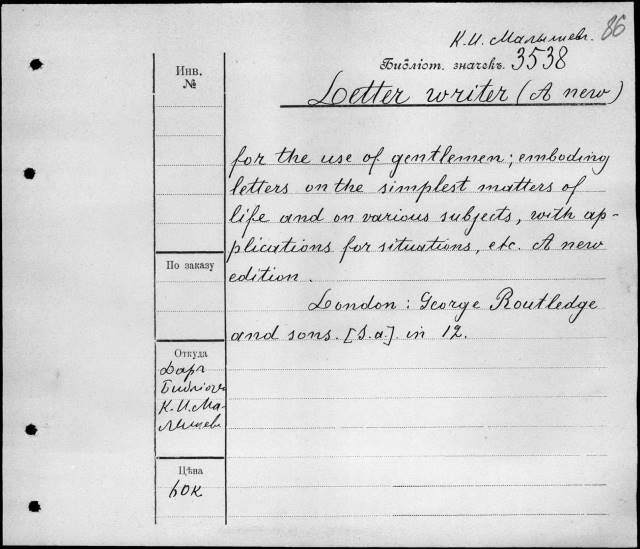 86
К. И. Малышев.
Библіот. значекъ. 3538
Letter writer (A new)
Инв.
№
for the use of gentlemen; emboding
letters on the simplest matters of
life and on various subjects, with ap-
plications for situations, etc. A new
edition.
London: George Routledge
and sons. [S.a]. in 12.
По заказу
Откуда
Даръ
К. И. Ма-
лышев
Цѣна
60к